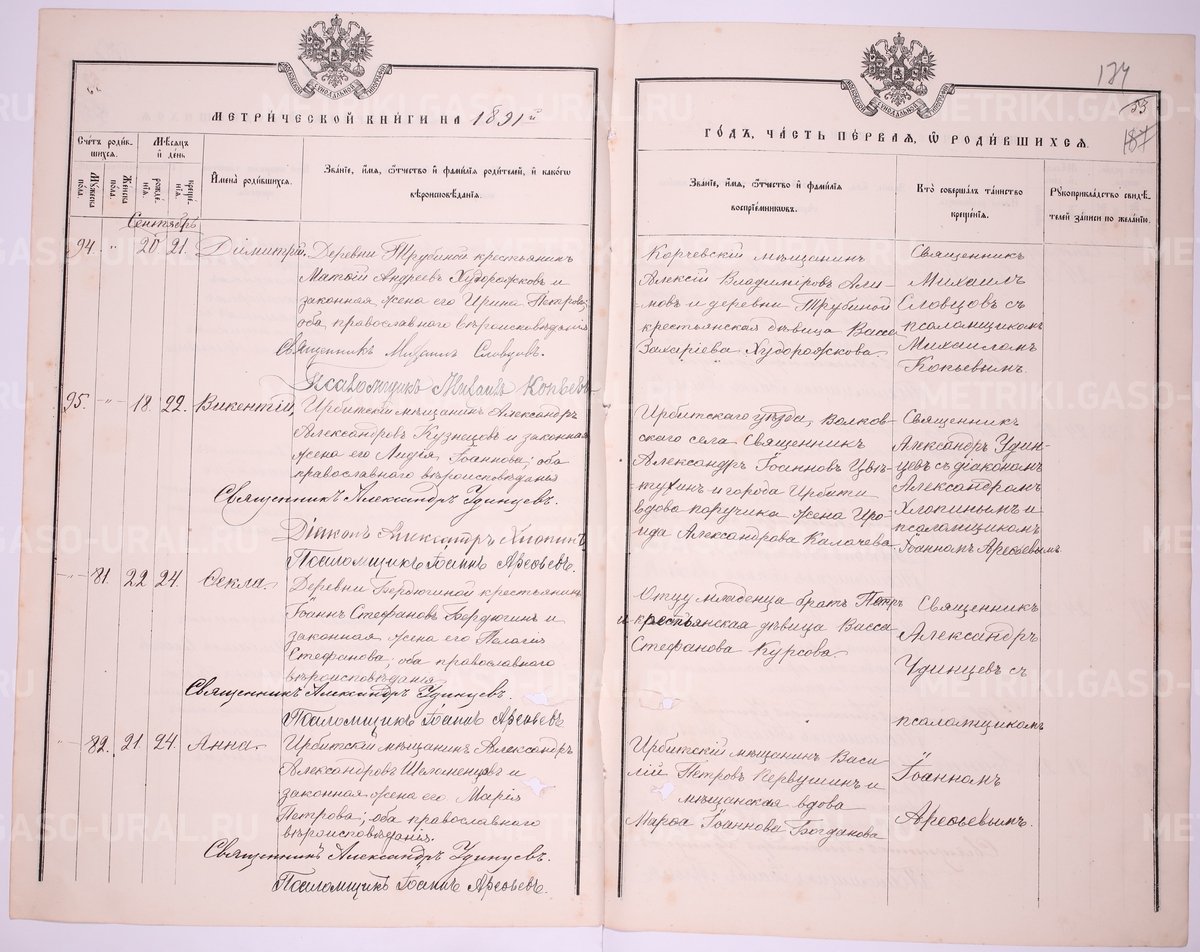 МЕТРИЧЕСКОЙ КНИГИ НА 1891й
Счетъ родив-
шихся.
Мѣсяцъ
и день
Мужеска
пола
Женска
пола.
рожде-
нія.
креще-
нія.
Имена родившихся.
Званіе, имя, отчество и фамилія родителей, и какого
вѣроисповѣданія.
Сентябрь
94. " 20. 21. Димитрій. Деревни Трубиной крестьянинъ
Матѳій Андреевъ Худорожковъ и
законная жена его Ирина Петрова;
оба православнаго вѣроисповѣданія
Священникъ Михаилъ Словцовъ.
Псаломщикъ Михаилъ Копьевъ
95. " 18. 22. Викентій. Ирбитскій мѣщанинъ Александръ
Александровъ Кузнецовъ и законная
жена его Лидія Іоаннова; оба
православнаго вѣроисповѣданія
Священникъ Александръ Удинцевъ.
Діаконъ Александръ Хлопинъ
Псаломщикъ Іоаннъ Арефьевъ.
" 81. 22 24. Ѳекла. Деревни Бердюгиной крестьянинъ
Іоаннъ Стефановъ Бердюгинъ и
законная жена его Пелагія
Стефанова; оба православнаго
вѣроисповѣданія
Священникъ Александръ Удинцевъ.
Псаломщикъ Іоаннъ Арефьевъ
" 82. 21. 24. Анна. Ирбитскій мѣщанинъ Александръ
Александровъ и
законная жена его Марія
Петрова; оба православнаго
вѣроисповѣданія.
Священникъ Александръ Удинцевъ.
Псаломщикъ Іоаннъ Арефьевъ.
124
187
ГОДЪ, ЧАСТЬ ПЕРВАЯ, Ѡ РОДИВШИХСЯ.
Званіе, имя, отчество и фамилія
воспріемниковъ.
Кто совершалъ таинство
крещенія.
Рукоприкладство свидѣ-
телей записи по желанію.
Корчевскій мѣщанинъ
Алексій Владиміровъ Али-
мовъ и деревни Трубиной
крестьянская дѣвица Васса
Захаріева Худорожкова
Священникъ
Михаилъ
Словцовъ съ
псаломщикомъ
Михаиломъ
Копьевымъ.
Ирбитскаго уѣзда, Волков-
скаго села Священникъ
Александръ Іоанновъ Цвѣ-
тухинъ и города Ирбити
вдова поручика жена Иро-
ида Александрова Калачева
Священникъ
Александръ Удин-
цевъ съ діакономъ
Александромъ
Хлопинымъ и
псаломщикомъ
Іоанномъ Арефьевымъ
Отцу младенца братъ Петръ
и крестьянская дѣвица Васса
Стефанова Курсова.
Священникъ
Александръ
Удинцевъ съ
псаломщикомъ
Іоанномъ
Арефьевымъ.
Ирбитскій мѣщанинъ Васи-
лій Петровъ Первушинъ и
мѣщанская вдова
Марѳа Іоаннова Богданова
METRIKI.GASO-URAL.RU